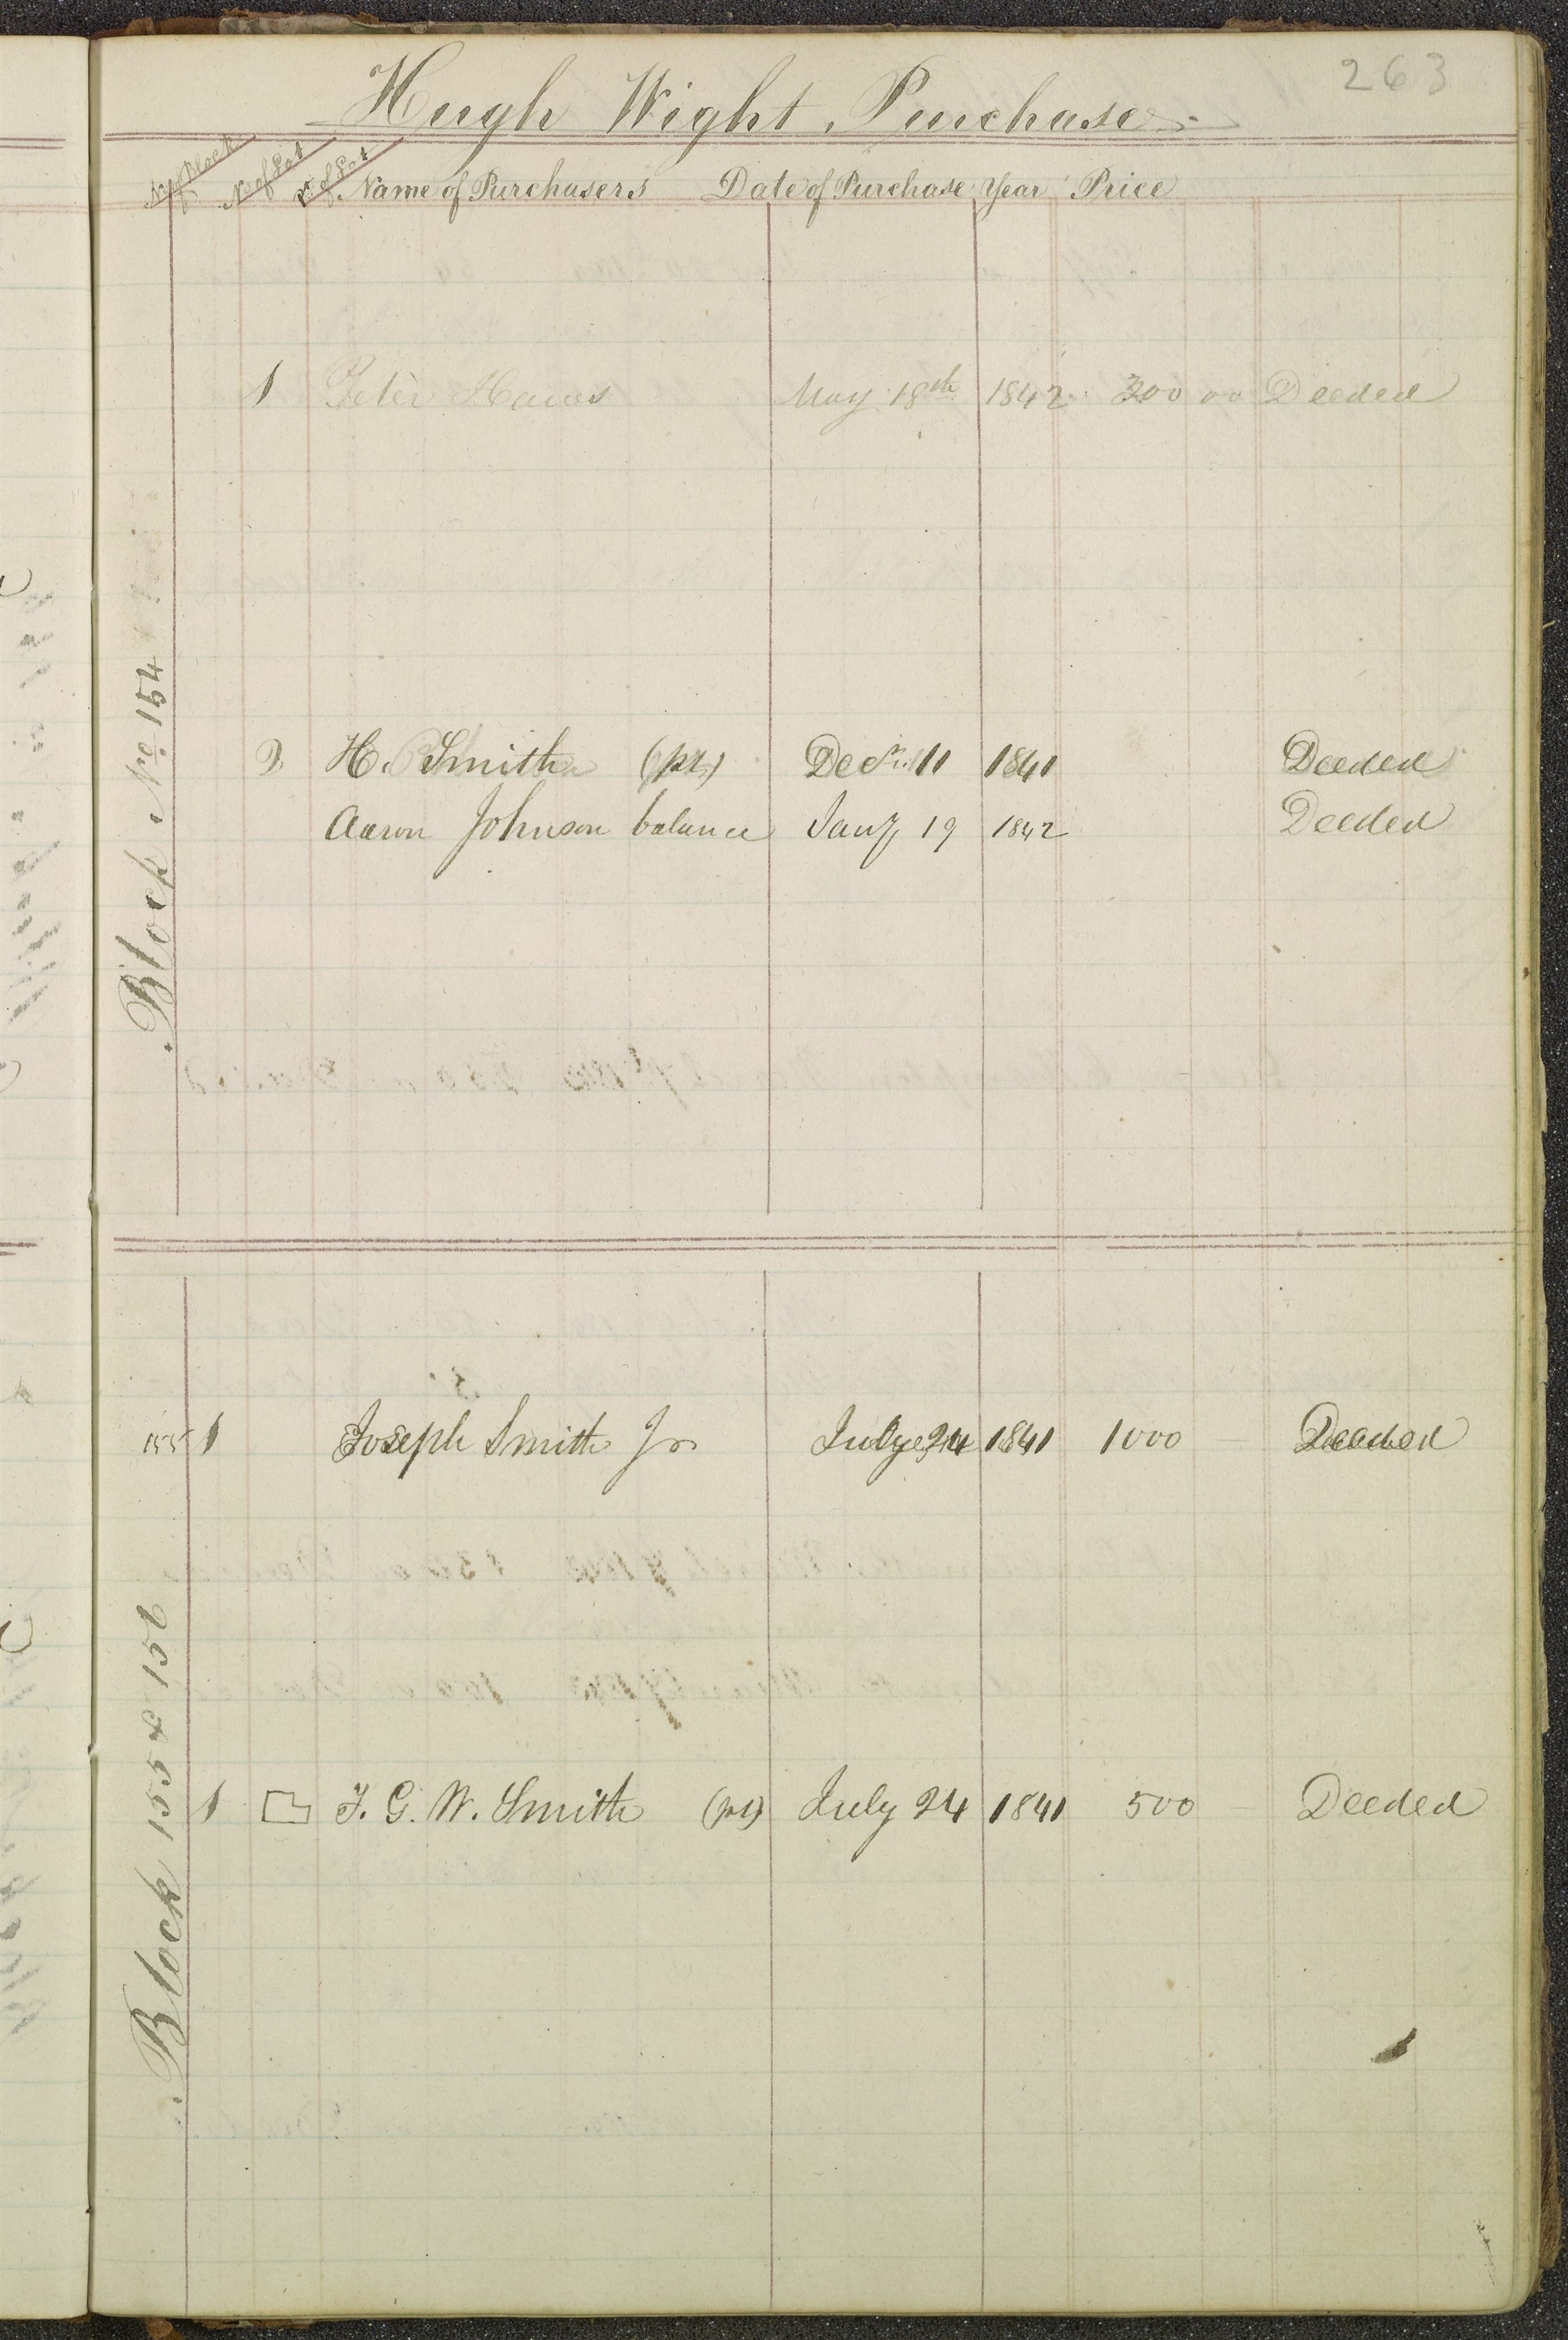 263
Hugh Wight Purchase
No of Block No of Lot pt of Lot Name of Purchasers Date of Purchase Year Price
Block No. 154
1 Peter Hawes May 18th 1842 300 00 Deeded
2 H. Smith (pt) Decr. 11 1841 Deeded
Aaron Johnson balance Jany 19 1842 Deeded
Block 155 & 156
155 1 Joseph Smith Jr July 24 1841 1000 Deeded
1 F. G. W. Smith (pt) July 24 1841 500 Deeded